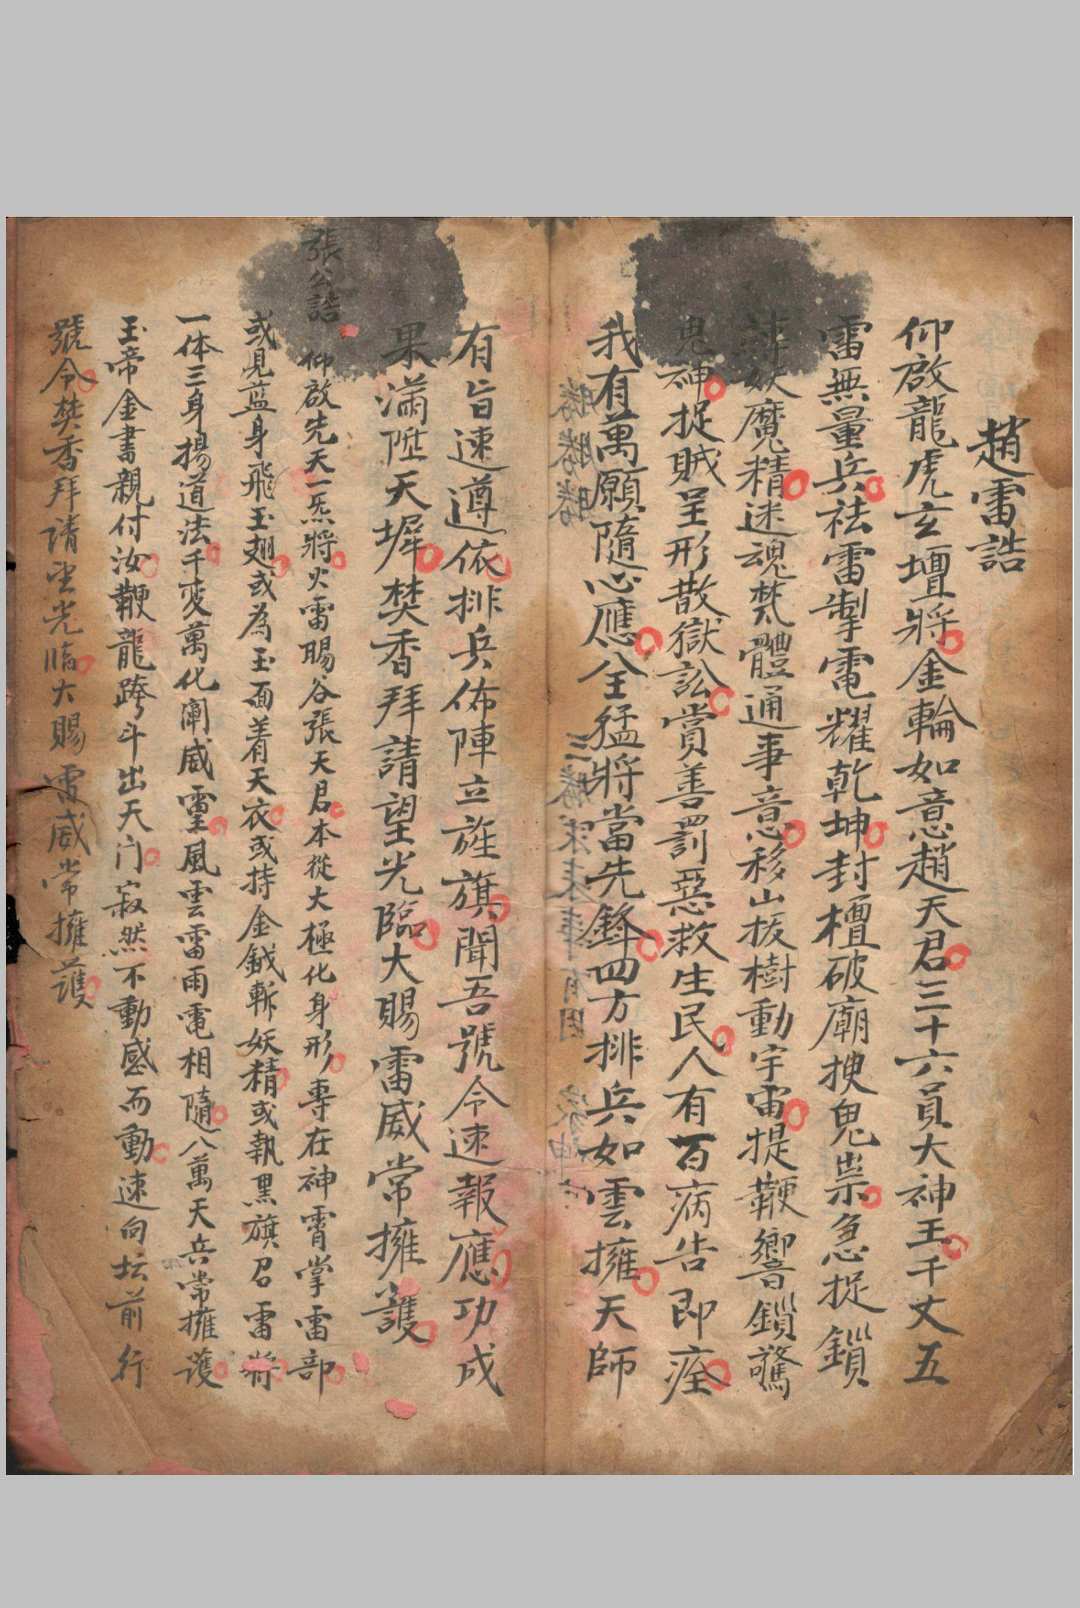 趙雷誥
仰啟龍虎玄壇將金輪如意趙天君三十六員大神王千丈五
雷無量兵祛雷掣電耀乾坤封壇破廟捜鬼祟急捉鎖
妖魔精迷魂梵體通事意移山拔樹動宇宙提鞭響鎖驚
鬼神捉賊呈形散獄訟賞善罰惡救生民人有百病告即痊
我有萬願隨心應全猛將當先鋒四方排兵如雲擁天師
有旨速遵依排兵佈陣立旌旗聞吾號令速報應功成
果滿陞天墀焚香拜請望光臨大賜雷威常擁護
張公誥 仰啟先天一炁將火雷賜谷張天君本從大極化身形專在神霄掌雷部
或見藍身飛玉翅或為玉面着天衣或持金鉞斬妖精或執黑旗召雷將
一体三身揚道法千変萬化闡威靈風雲雷雨電相隨八萬天兵常擁護
玉帝金書親付汝鞭龍跨斗出天门寂然不動感而動速向坛前行
號令焚香拜請望光臨大賜雷威常擁護